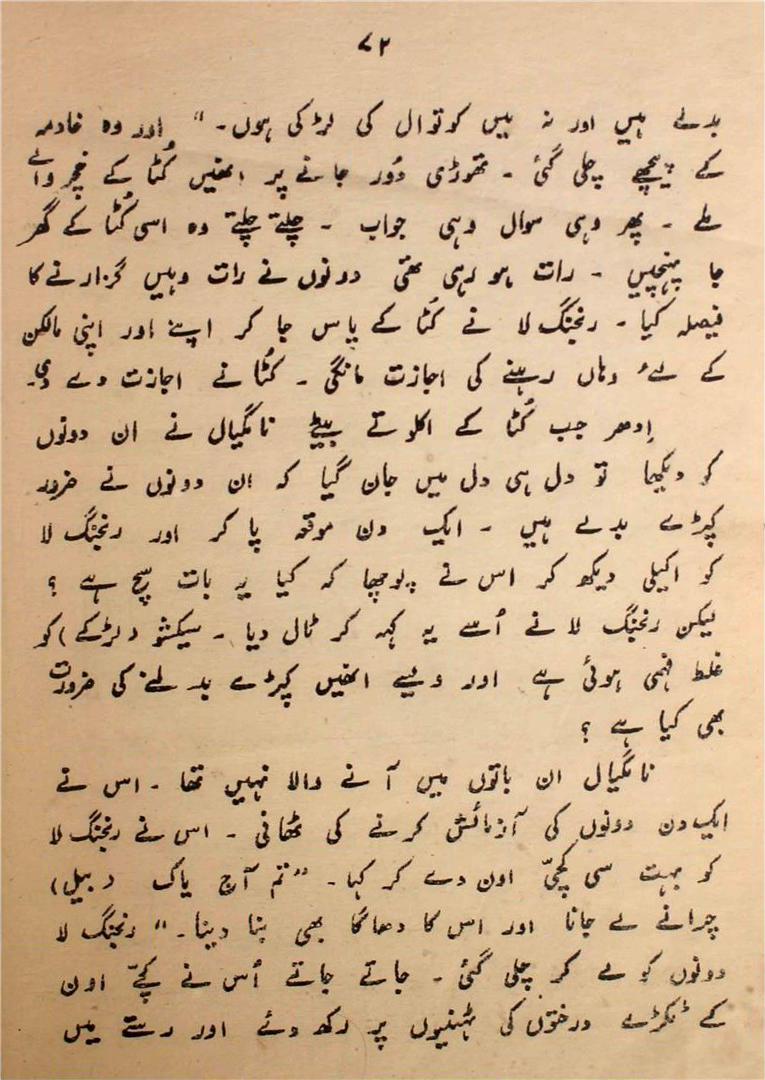 ۷۲
بدلے ہیں اور نہ میں کوتوال کی لڑکی ہوں۔" اور وہ خادمہ
کے پیچھے چلی گئی ۔ تھوڑی دُور جانے پر انھیں کُٹا کے خچر والے
ملے ۔ پھر وہی سوال وہی جواب ۔ چلتے چلتے وہ اسی کُٹا کے گھر
جا پہنچیں ۔ رات ہو رہی تھی دونوں نے رات وہیں گزارنے کا
فیصلہ کیا ۔ رنجنگ لا نے کُٹا کے پاس جا کر اپنے اور اپنی مالکن
کے لئے وہاں رہنے کی اجازت مانگی ۔ کُٹا نے اجازت دے دی۔
اِدھر جب کُٹا کے اکلوتے بیٹے نامگیال نے ان دونوں
کو دیکھا تو دل ہی دل میں جان گیا کہ ان دونوں نے ضرور
کپڑے بدلے ہیں ۔ ایک دن موقعہ پا کر اور رنجنگ لا
کو اکیلی دیکھ کر اس نے پوچھا کہ کیا یہ بات سچ ہے ؟
لیکن رنجنگ لا نے اُسے یہ کہہ کر ٹال دیا ۔ سیکشو (لڑکے) کو
غلط فہمی ہوئی ہے اور ویسے انھیں کپڑے بدلنے کی ضرورت
بھی کیا ہے ؟
نامگیال ان باتوں میں آنے والا نہیں تھا ۔ اس نے
ایک دن دونوں کی آزمائش کرنے کی ٹھانی ۔ اس نے رنجنگ لا
کو بہت سی کچّی اون دے کر کہا ۔ "تم آج یاک (بیل)
چرانے لے جانا اور اس کا دھاگا بھی بنا دینا ۔" رنجنگ لا
دونوں کو لے کر چلی گئی ۔ جاتے جاتے اُس نے کچّے اون
کے ٹکڑے درختوں کی ٹہنیوں پر رکھ دئے اور رستے میں